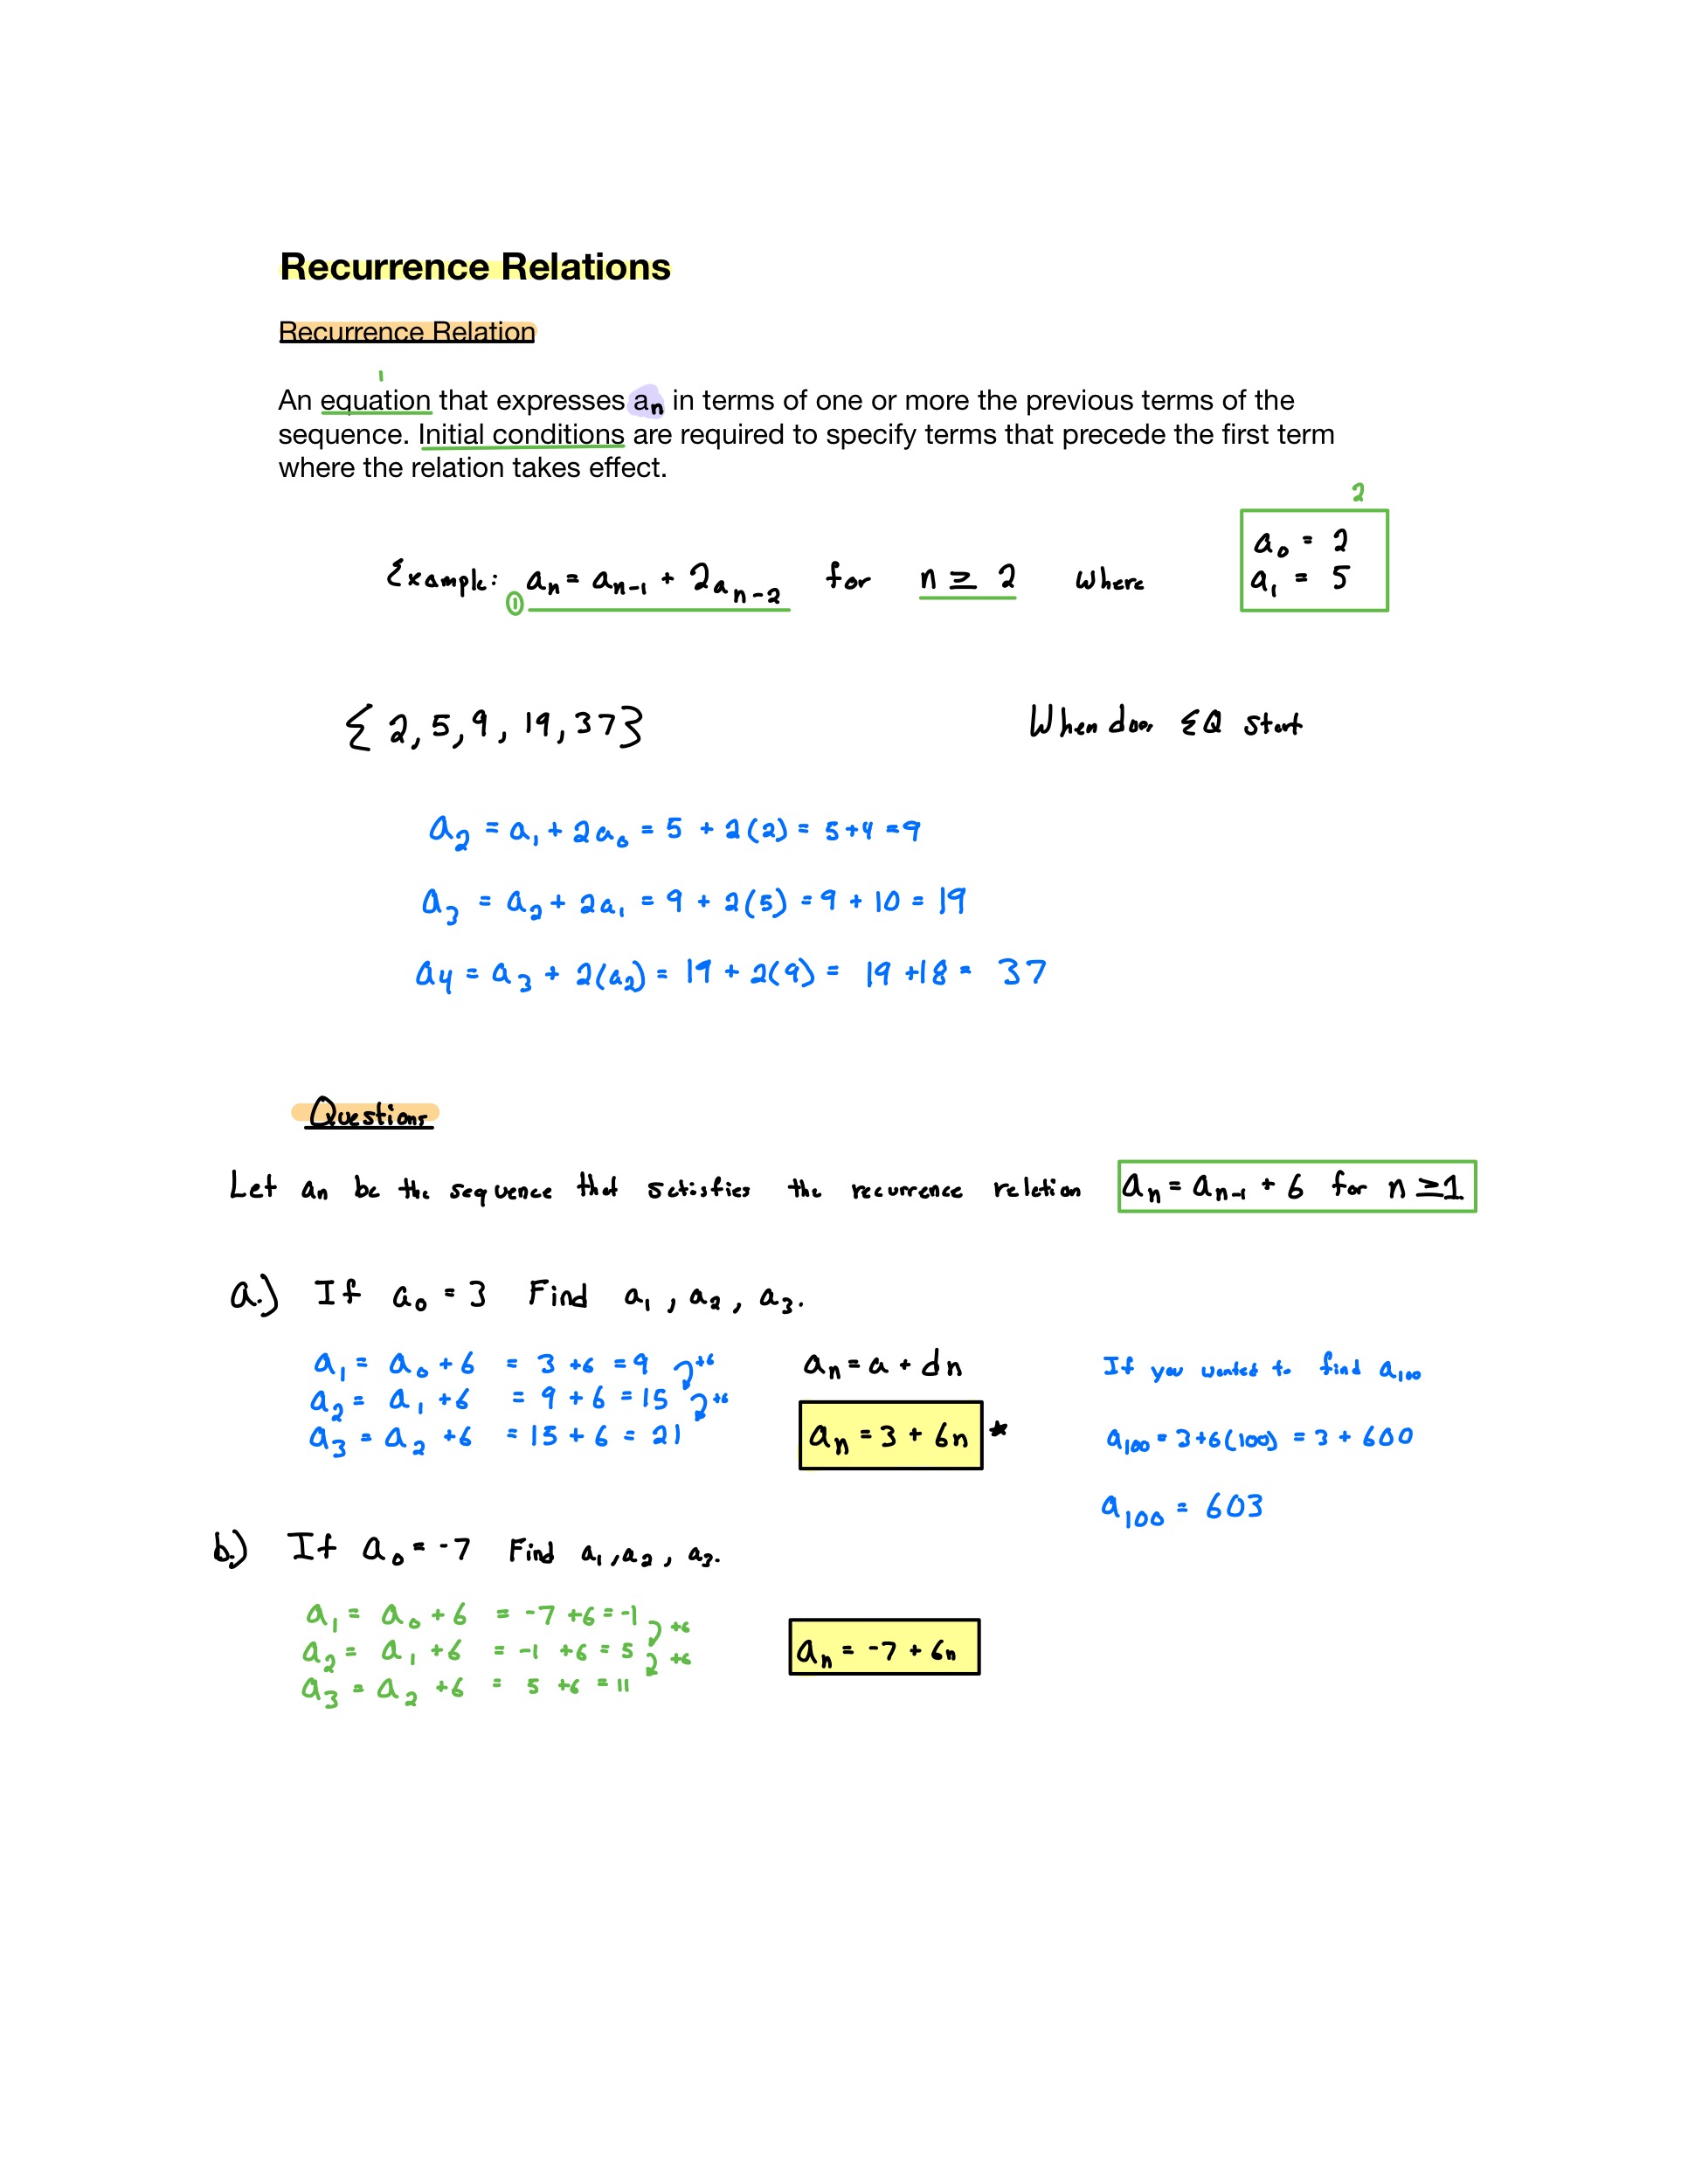 Recurrence Relations
Recurrence Relation
1
An equation that expresses aₙ in terms of one or more the previous terms of the
sequence. Initial conditions are required to specify terms that precede the first term
where the relation takes effect.
2
Example: ① aₙ = aₙ₋₁ + 2aₙ₋₂ for n ≥ 2 where
a₀ = 2
a₁ = 5
{ 2, 5, 9, 19, 37 }
When does EQ start
a₂ = a₁ + 2a₀ = 5 + 2(2) = 5+4 = 9
a₃ = a₂ + 2a₁ = 9 + 2(5) = 9 + 10 = 19
a₄ = a₃ + 2(a₂) = 19 + 2(9) = 19 + 18 = 37
Questions
Let an be the sequence that satisfies the recurrence relation aₙ = aₙ₋₁ + 6 for n ≥ 1
a.) If a₀ = 3 Find a₁, a₂, a₃.
a₁ = a₀ + 6 = 3 + 6 = 9 +6
a₂ = a₁ + 6 = 9 + 6 = 15 +6
a₃ = a₂ + 6 = 15 + 6 = 21
aₙ = a + dn
aₙ = 3 + 6n *
If you wanted to find a₁₀₀
a₁₀₀ = 3+6(100) = 3 + 600
a₁₀₀ = 603
b.) If a₀ = -7 Find a₁, a₂, a₃.
a₁ = a₀ + 6 = -7 + 6 = -1 +6
a₂ = a₁ + 6 = -1 + 6 = 5 +6
a₃ = a₂ + 6 = 5 + 6 = 11
aₙ = -7 + 6n